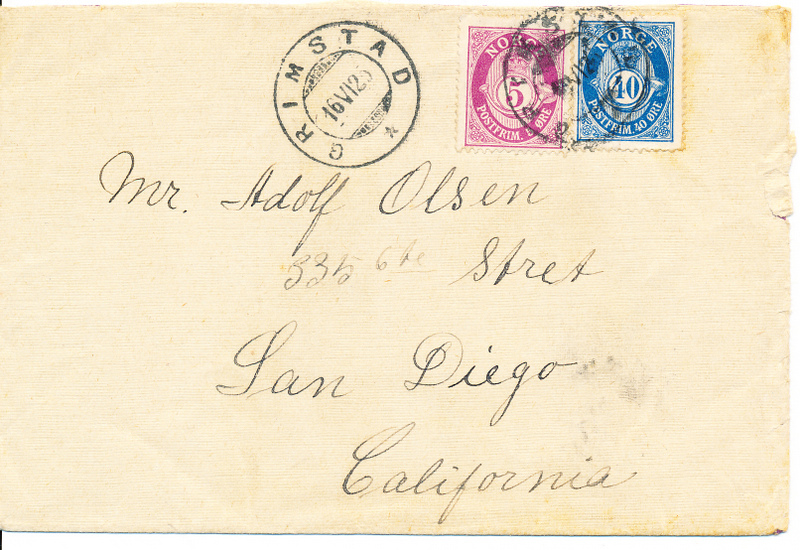 GRIMSTAD
16 VI 25
NORGE
5
POSTFRIM. 5 ØRE
NORGE
40
POSTFRIM. 40 ØRE
Mr. Adolf Olsen
335 6te Stret
San Diego
California